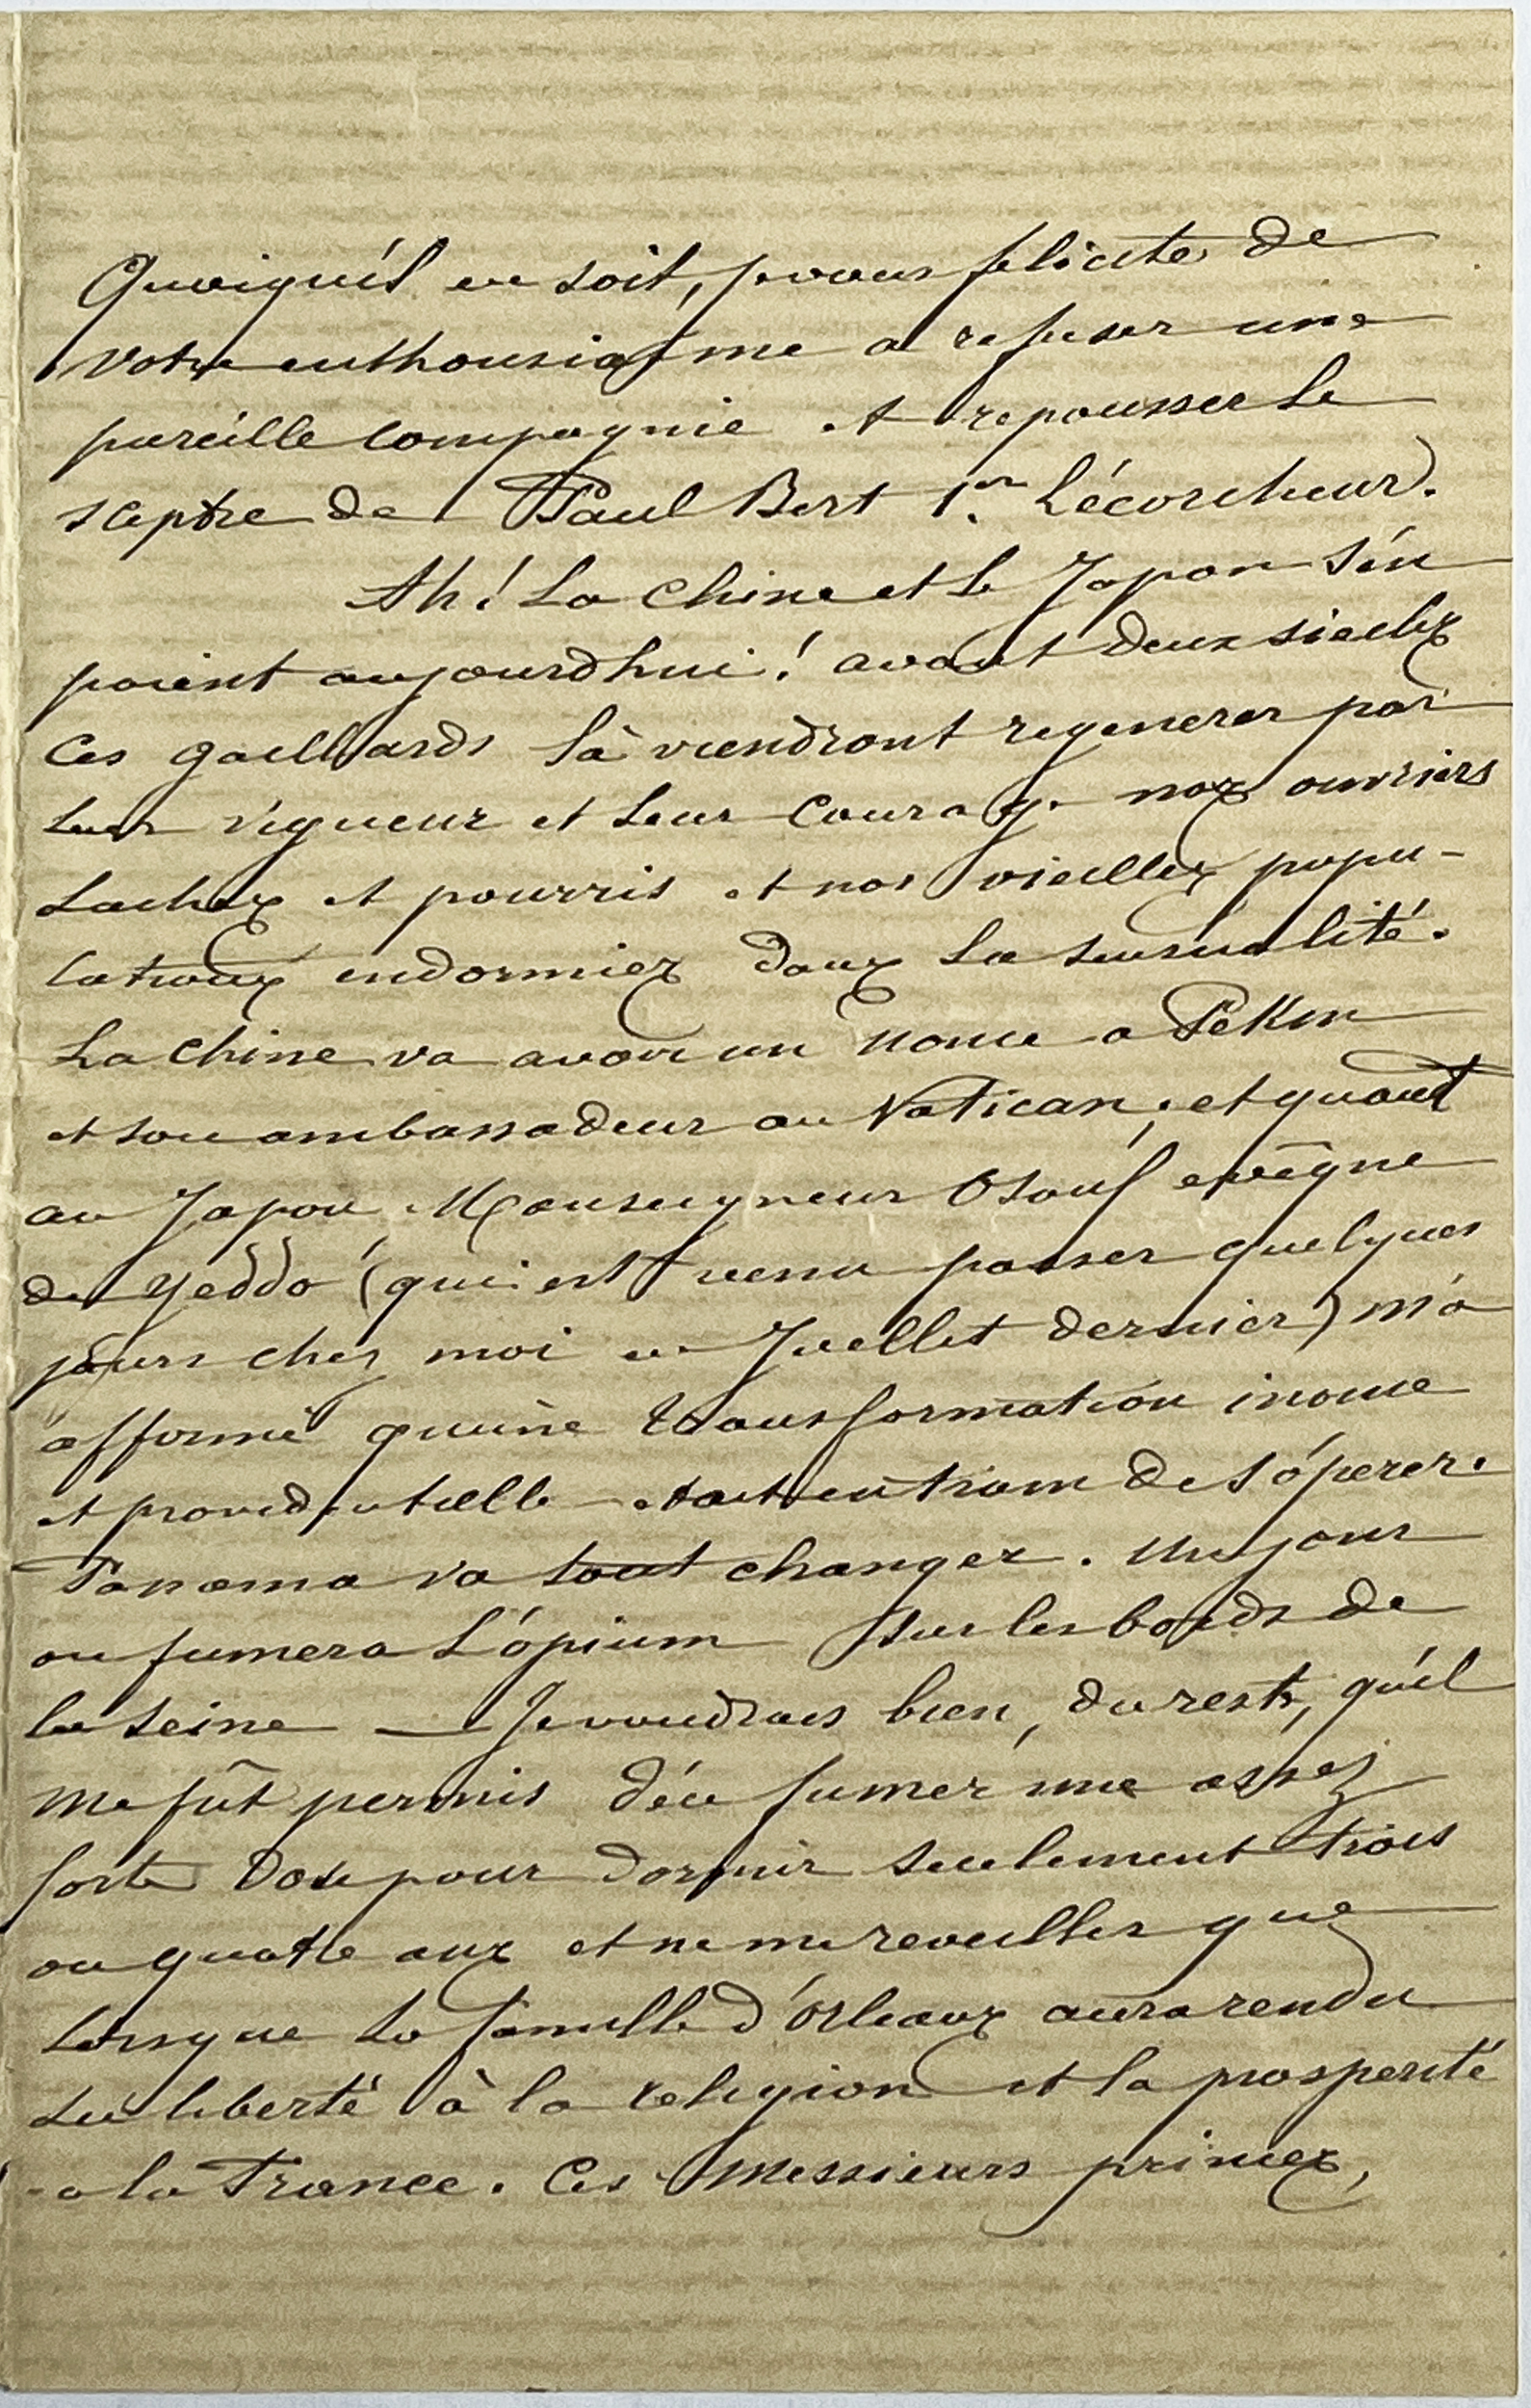 Quoiqu'il en soit, je vous felicite de
votre enthousiasme a refuser une
pareille compagnie et repousser le
sceptre de Paul Bert 1er L'écorcheur.
Ah! La Chine et le Japon s'en
paient aujourdhui! avant deux siecles
ces gaillards là viendront regenerer par
leur vigueur et leur courage nos ouvriers
laches et pourris et nos vieilles popu-
lations endormies dans la sensualité.
La Chine va avoir un nonce a Pekin
et son ambassadeur au Vatican; et quant
au Japon, Monseigneur Osouf evêque
de Yeddo (qui est venu passer quelques
jours chez moi en Juillet dernier) m'a
affirmé qu'une transformation inouie
et providentielle etait en train de s'operer.
Panama va tout changer. Un jour
on fumera l'opium sur les bords de
la Seine — Je voudrais bien, du reste, qu'il
me fût permis d'en fumer une assez
forte dose pour dormir seulement trois
ou quatre ans et ne me reveiller que
lorsque la famille d'Orleans aura rendu
la liberté à la religion et la prosperité
a la France. Ces Messieurs princes,